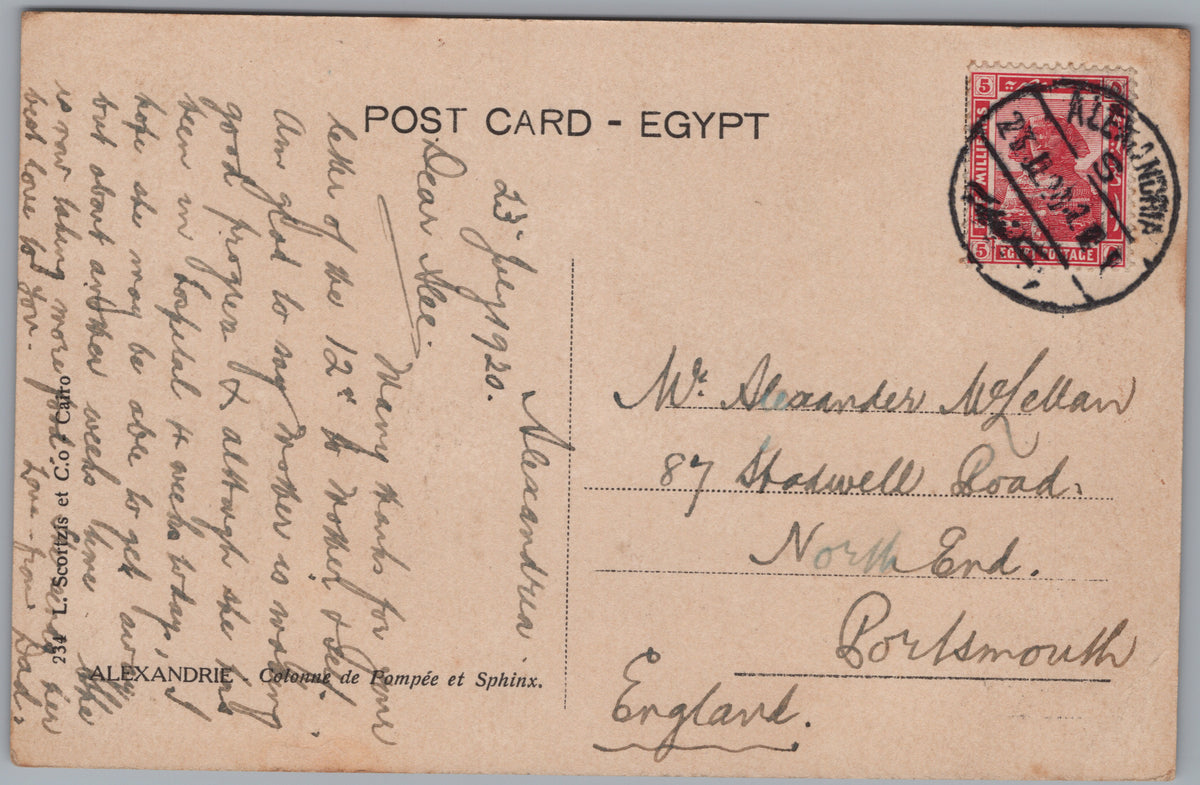 POST CARD - EGYPT
Alexandria
23rd July 1920.
Dear Alec.
Many thanks for your
letter of the 12th to Mother & self.
Am glad to say Mother is making
good progress & although she has
been in hospital 4 weeks today, I
hope she may be able to get away
but about another weeks time. She
is now taking more food.
best love to you. from Dad.
234 L. Scortzis et C.o Cairo
ALEXANDRIE - Colonne de Pompée et Sphinx.
5
MILLIEMES
5
EGYPT POSTAGE
ALEXANDRIA
23 JL 20
Mr. Alexander McLellan
87 Shadwell Road.
North End.
Portsmouth
England.